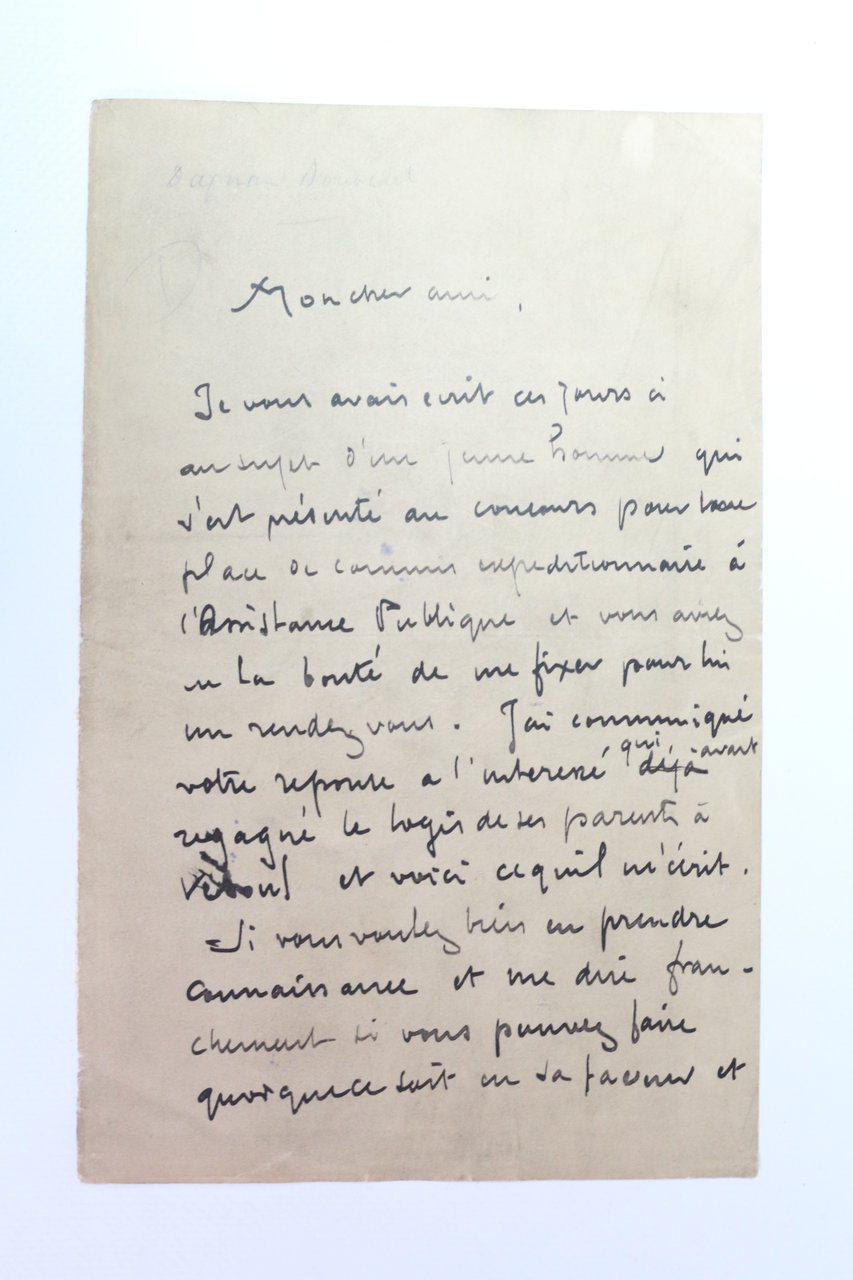 Dagnan Bouveret
Mon cher ami,
Je vous avais ecrit ces jours ci
au sujet d'un jeune homme qui
s'est présenté au concours pour une
place de commis expeditionnaire à
l'Assistance Publique et vous aviez
eu la bonté de me fixer pour lui
un rendez vous. J'ai communiqué
votre reponse a l'interessé qui déjà avait
regagné le logis de ses parents à
Vesoul et voici ce qu'il m'écrit.
Si vous voulez bien en prendre
connaissance et me dire fran-
chement si vous pouvez faire
quoique ce soit en sa faveur et